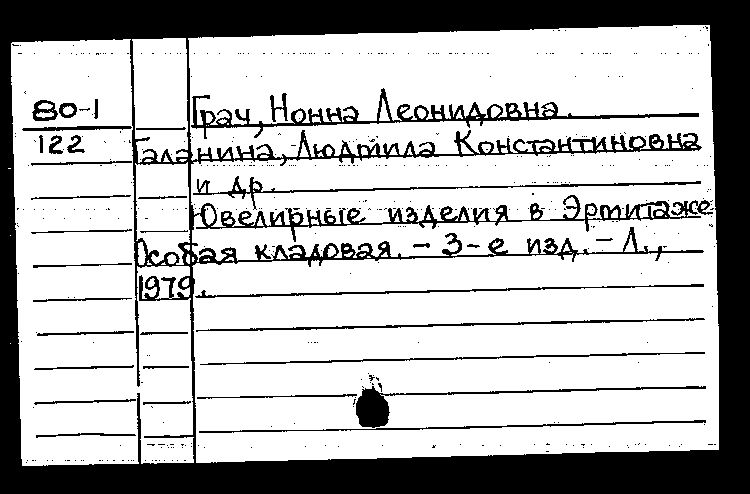 80-1
122
Грач, Нонна Леонидовна.
Галанина, Людмила Константиновна
и др.
Ювелирные изделия в Эрмитаже
Особая кладовая. - 3-е изд. - Л.,
1979.